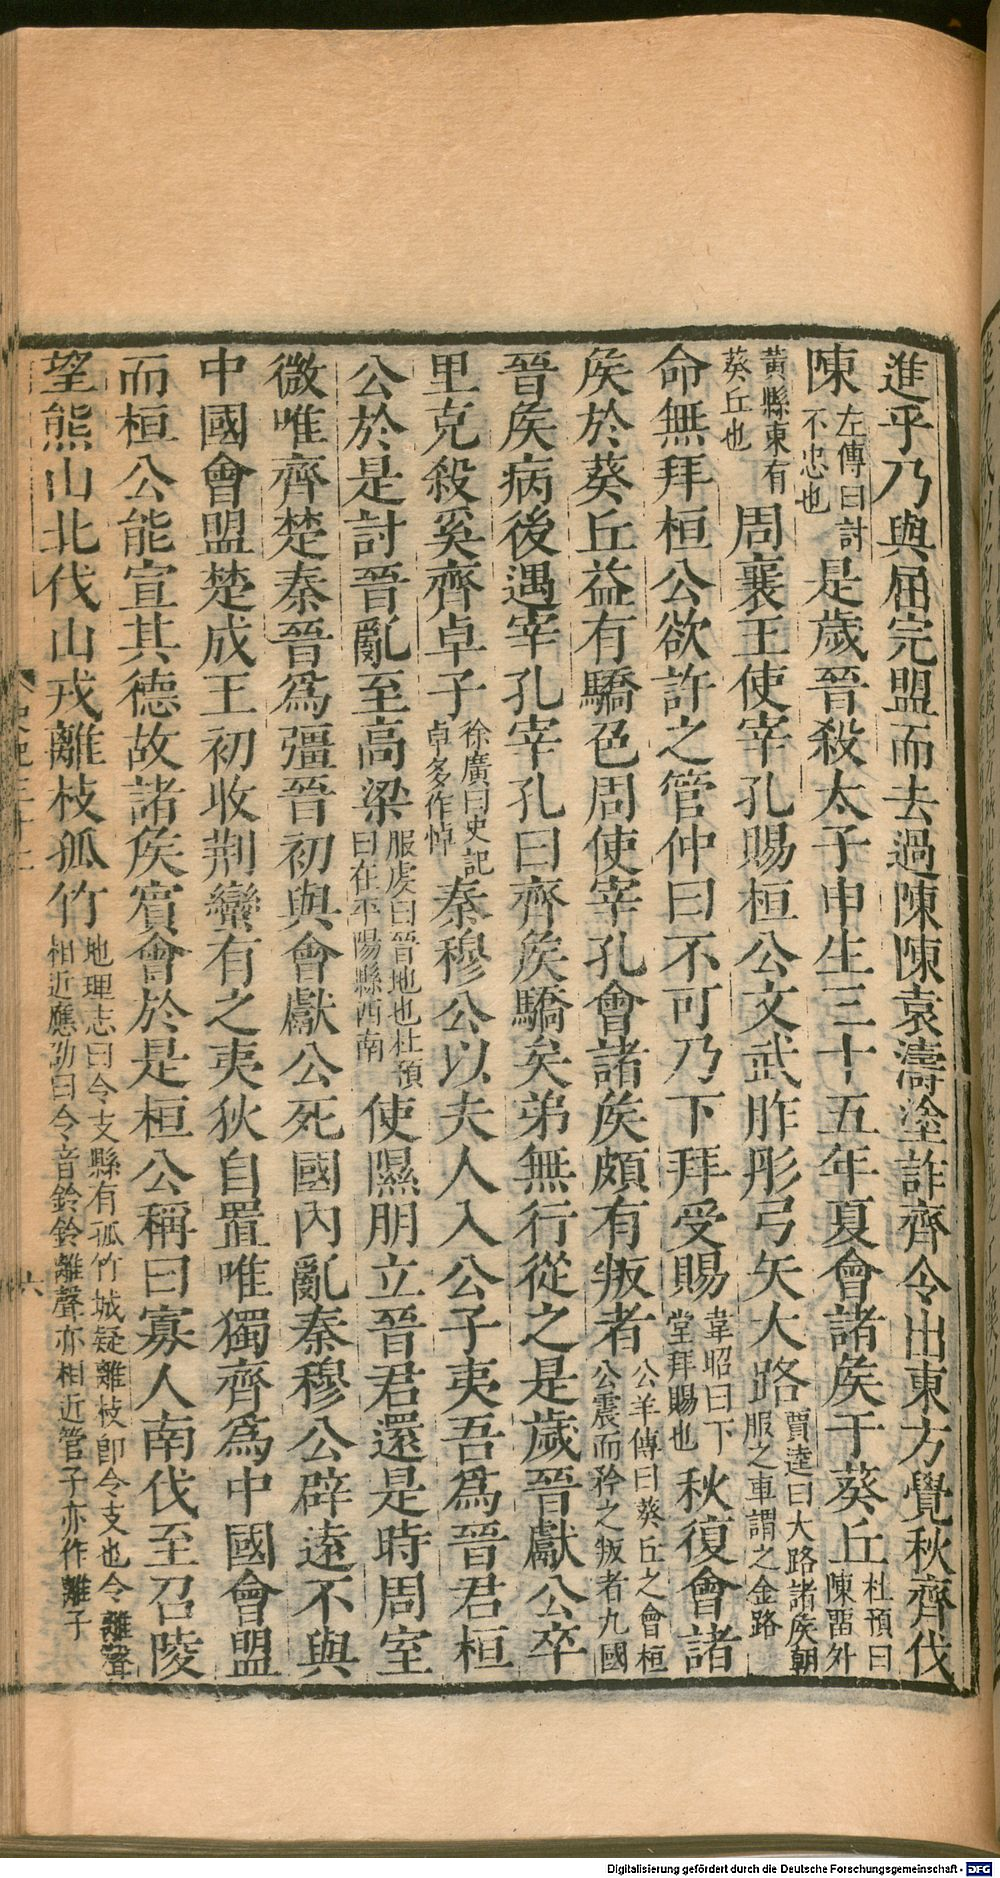 進乎乃與屈完盟而去過陳陳袁濤塗詐齊令出東方覺秋齊伐
陳左傳曰討不忠也是歲晉殺太子申生三十五年夏會諸矦于葵丘杜預曰陳畱外
黃縣東有葵丘也周襄王使宰孔賜桓公文武胙彤弓矢大路賈逵曰大路諸矦朝服之車謂之金路
命無拜桓公欲許之管仲曰不可乃下拜受賜韋昭曰下堂拜賜也秋復會諸
矦於葵丘益有驕色周使宰孔會諸矦頗有叛者公羊傳曰葵丘之會桓公震而矜之叛者九國
晉矦病後遇宰孔宰孔曰齊矦驕矣弟無行從之是歲晉獻公卒
里克殺奚齊卓子徐廣曰史記卓多作悼秦穆公以夫人入公子夷吾爲晉君桓
公於是討晉亂至高梁服虔曰晉地也杜預曰在平陽縣西南使隰朋立晉君還是時周室
微唯齊楚秦晉爲彊晉初與會獻公死國內亂秦穆公辟遠不與
中國會盟楚成王初收荆蠻有之夷狄自置唯獨齊爲中國會盟
而桓公能宣其德故諸矦賓會於是桓公稱曰寡人南伐至召陵
望熊山北伐山戎離枝孤竹地理志曰令支縣有孤竹城疑離枝卽令支也令離聲相近應劭曰令音鈴鈴離聲亦相近管子亦作離子
六
Digitalisierung gefördert durch die Deutsche Forschungsgemeinschaft - DFG